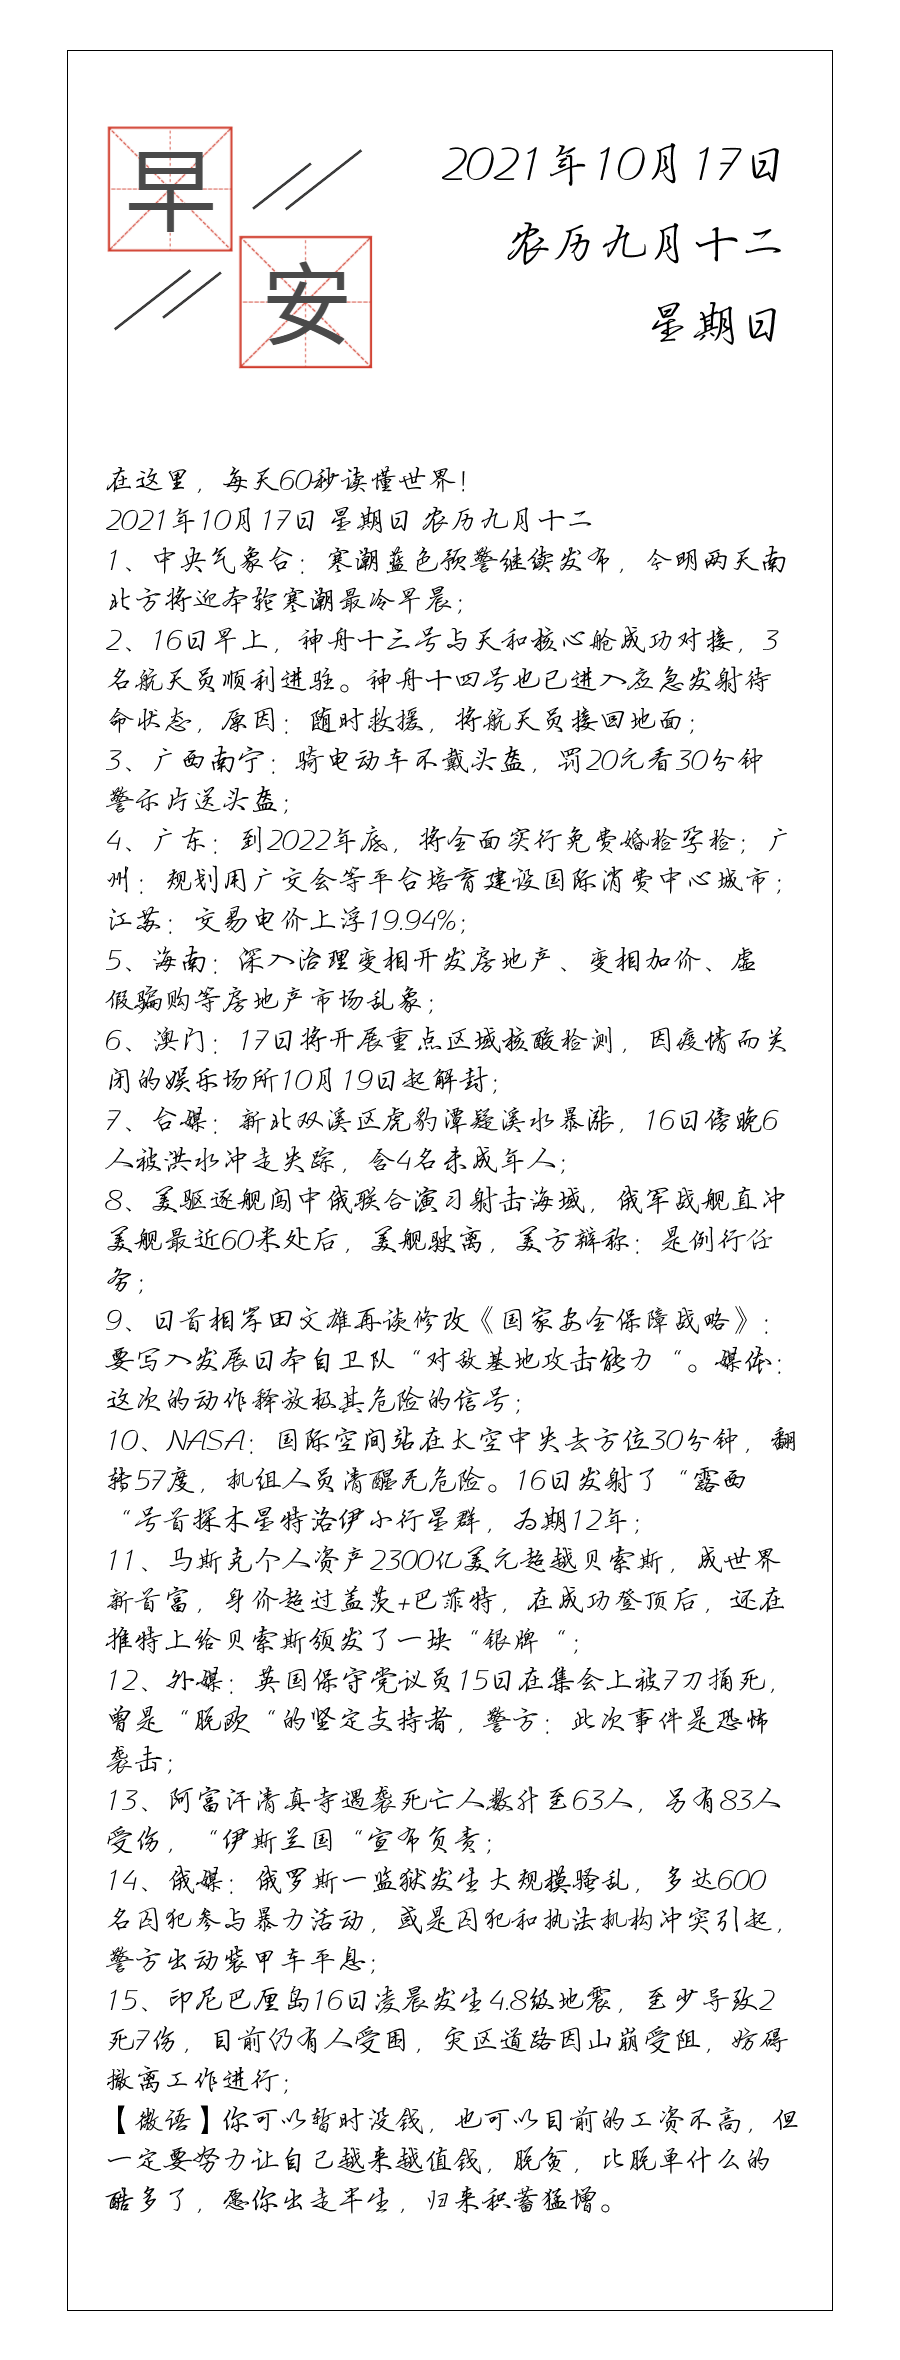 早
安
2021年10月17日
农历九月十二
星期日
在这里，每天60秒读懂世界！
2021年10月17日 星期日 农历九月十二
1、中央气象台：寒潮蓝色预警继续发布，今明两天南
北方将迎本轮寒潮最冷早晨；
2、16日早上，神舟十三号与天和核心舱成功对接，3
名航天员顺利进驻。神舟十四号也已进入应急发射待
命状态，原因：随时救援，将航天员接回地面；
3、广西南宁：骑电动车不戴头盔，罚20元看30分钟
警示片送头盔；
4、广东：到2022年底，将全面实行免费婚检孕检；广
州：规划用广交会等平台培育建设国际消费中心城市；
江苏：交易电价上浮19.94%；
5、海南：深入治理变相开发房地产、变相加价、虚
假骗购等房地产市场乱象；
6、澳门：17日将开展重点区域核酸检测，因疫情而关
闭的娱乐场所10月19日起解封；
7、台媒：新北双溪区虎豹潭疑溪水暴涨，16日傍晚6
人被洪水冲走失踪，含4名未成年人；
8、美驱逐舰闯中俄联合演习射击海域，俄军战舰直冲
美舰最近60米处后，美舰驶离，美方辩称：是例行任
务；
9、日首相岸田文雄再谈修改《国家安全保障战略》：
要写入发展日本自卫队“对敌基地攻击能力“。媒体：
这次的动作释放极其危险的信号；
10、NASA：国际空间站在太空中失去方位30分钟，翻
转57度，机组人员清醒无危险。16日发射了“露西
“号首探木星特洛伊小行星群，为期12年；
11、马斯克个人资产2300亿美元超越贝索斯，成世界
新首富，身价超过盖茨+巴菲特，在成功登顶后，还在
推特上给贝索斯颁发了一块“银牌“；
12、外媒：英国保守党议员15日在集会上被7刀捅死，
曾是“脱欧“的坚定支持者，警方：此次事件是恐怖
袭击；
13、阿富汗清真寺遇袭死亡人数升至63人，另有83人
受伤，“伊斯兰国“宣布负责；
14、俄媒：俄罗斯一监狱发生大规模骚乱，多达600
名囚犯参与暴力活动，或是囚犯和执法机构冲突引起，
警方出动装甲车平息；
15、印尼巴厘岛16日凌晨发生4.8级地震，至少导致2
死7伤，目前仍有人受困，灾区道路因山崩受阻，妨碍
撤离工作进行；
【微语】你可以暂时没钱，也可以目前的工资不高，但
一定要努力让自己越来越值钱，脱贫，比脱单什么的
酷多了，愿你出走半生，归来积蓄猛增。